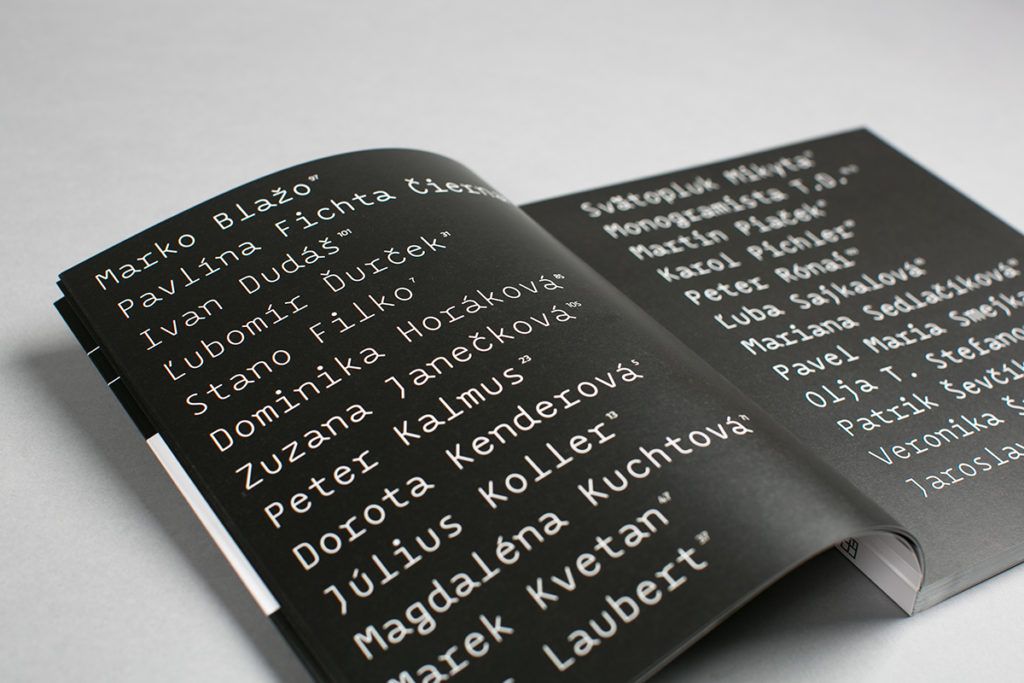 Marko Blažo⁹⁷
Pavlína Fichta Čierna
Ivan Dudáš¹⁰¹
Ľubomír Ďurček³¹
Stano Filko⁷
Dominika Horáková⁸⁵
Zuzana Janečková¹⁰⁵
Peter Kalmus²³
Dorota Kenderová⁵
Július Koller¹³
Magdaléna Kuchtová⁷¹
Marek Kvetan⁴⁷
Laubert³⁷
Svätopluk Mikyta
Monogramista T.D.
Martin Piaček
Karol Pichler
Peter Rónai
Ľuba Sajkalová
Mariana Sedlačiková
Pavel Maria Smejka
Olja T. Stefano
Patrik Ševčík
Veronika
Jarosla